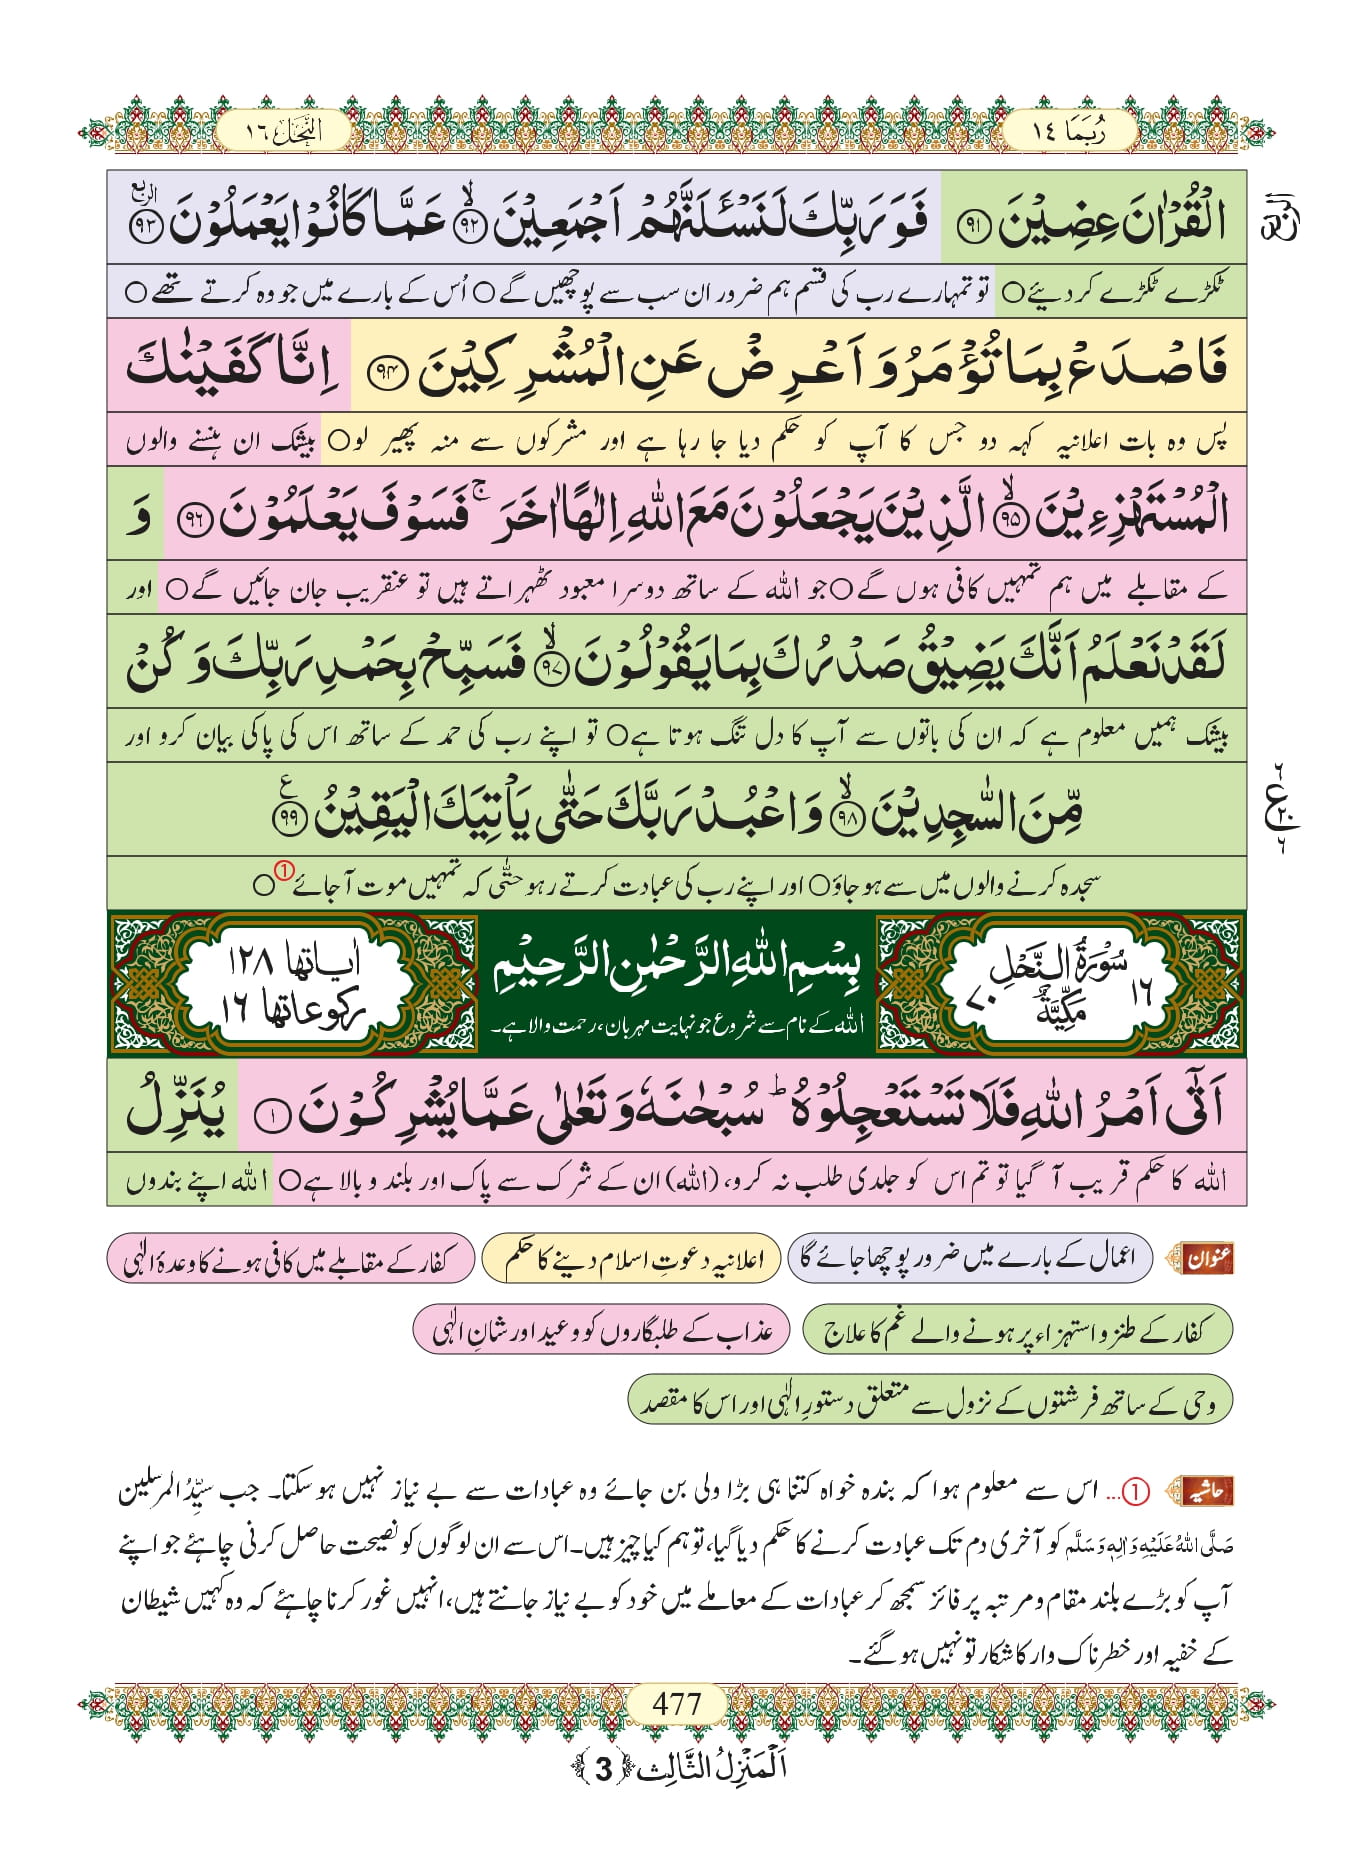 رُبَمَا ١٤
النَّحْل ١٦
الْقُرْاٰنَ عِضِیْنَ ﴿۹۱﴾ فَوَرَبِّكَ لَنَسْـَٔلَنَّهُمْ اَجْمَعِیْنَ ﴿ۙ۹۲﴾ عَمَّا كَانُوْا یَعْمَلُوْنَ ﴿الربع۹۳﴾
الربع
ٹکڑے ٹکڑے کردیئے○ تو تمہارے رب کی قسم ہم ضرور ان سب سے پوچھیں گے○ اُس کے بارے میں جو وہ کرتے تھے○
فَاصْدَعْ بِمَا تُؤْمَرُ وَ اَعْرِضْ عَنِ الْمُشْرِكِیْنَ ﴿۹۴﴾ اِنَّا كَفَیْنٰكَ
پس وہ بات اعلانیہ کہہ دو جس کا آپ کو حکم دیا جا رہا ہے اور مشرکوں سے منہ پھیر لو○ بیشک ان ہنسنے والوں
الْمُسْتَهْزِءِیْنَ ﴿ۙ۹۵﴾ الَّذِیْنَ یَجْعَلُوْنَ مَعَ اللّٰهِ اِلٰهًا اٰخَرَۚ فَسَوْفَ یَعْلَمُوْنَ ﴿۹۶﴾ وَ
کے مقابلے میں ہم تمہیں کافی ہوں گے○ جو اللہ کے ساتھ دوسرا معبود ٹھہراتے ہیں تو عنقریب جان جائیں گے○ اور
لَقَدْ نَعْلَمُ اَنَّكَ یَضِیْقُ صَدْرُكَ بِمَا یَقُوْلُوْنَ ﴿ۙ۹۷﴾ فَسَبِّحْ بِحَمْدِ رَبِّكَ وَ كُنْ
بیشک ہمیں معلوم ہے کہ ان کی باتوں سے آپ کا دل تنگ ہوتا ہے○ تو اپنے رب کی حمد کے ساتھ اس کی پاکی بیان کرو اور
مِّنَ السّٰجِدِیْنَ ﴿ۙ۹۸﴾ وَ اعْبُدْ رَبَّكَ حَتّٰى یَاْتِیَكَ الْیَقِیْنُ ﴿۹۹﴾ ع
٦ ع ٢٠ ٦
سجدہ کرنے والوں میں سے ہوجاؤ○ اور اپنے رب کی عبادت کرتے رہو حتّٰی کہ تمہیں موت آجائے①○
١٦ سُوْرَةُ النَّحْلِ مَكِّیَّةٌ ٧٠
بِسْمِ اللّٰهِ الرَّحْمٰنِ الرَّحِیْمِ
اللہ کے نام سے شروع جو نہایت مہربان، رحمت والا ہے۔
اٰیاتها ١٢٨
ركوعاتها ١٦
اَتٰۤى اَمْرُ اللّٰهِ فَلَا تَسْتَعْجِلُوْهُؕ سُبْحٰنَهٗ وَ تَعٰلٰى عَمَّا یُشْرِكُوْنَ ﴿۱﴾ یُنَزِّلُ
اللہ کا حکم قریب آگیا تو تم اس کو جلدی طلب نہ کرو، (اللہ) ان کے شرک سے پاک اور بلند و بالا ہے○ اللہ اپنے بندوں
عنوان
اعمال کے بارے میں ضرور پوچھا جائے گا
اعلانیہ دعوتِ اسلام دینے کا حکم
کفار کے مقابلے میں کافی ہونے کا وعدۂ الٰہی
کفار کے طنز و استہزاء پر ہونے والے غم کا علاج
عذاب کے طلبگاروں کو وعید اور شانِ الٰہی
وحی کے ساتھ فرشتوں کے نزول سے متعلق دستورِ الٰہی اور اس کا مقصد
حاشیہ
①... اس سے معلوم ہوا کہ بندہ خواہ کتنا ہی بڑا ولی بن جائے وہ عبادات سے بے نیاز نہیں ہوسکتا۔ جب سیِّدُ المرسلین
صَلَّی اللہُ عَلَیْہِ وَاٰلِہٖ وَسَلَّم کو آخری دم تک عبادت کرنے کا حکم دیا گیا، تو ہم کیا چیز ہیں۔ اس سے ان لوگوں کو نصیحت حاصل کرنی چاہئے جو اپنے
آپ کو بڑے بلند مقام و مرتبہ پر فائز سمجھ کر عبادات کے معاملے میں خود کو بے نیاز جانتے ہیں، انہیں غور کرنا چاہئے کہ وہ کہیں شیطان
کے خفیہ اور خطرناک وار کا شکار تو نہیں ہوگئے۔
477
اَلْمَنْزِلُ الثَّالِث ﴿3﴾